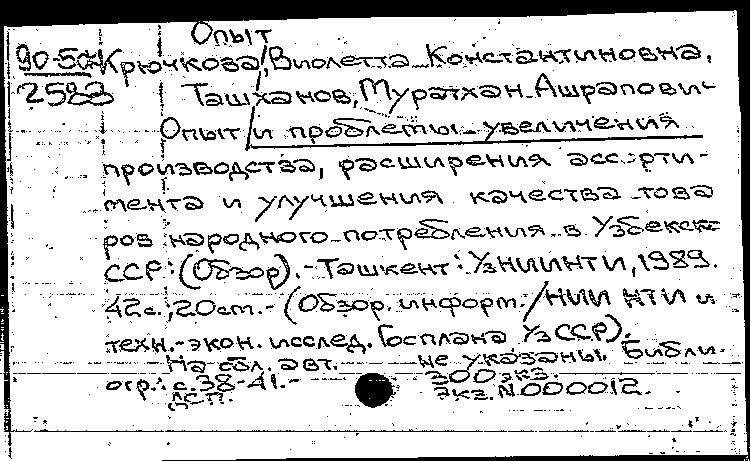 Опыт
90-50 Крючкова, Виолетта Константиновна,
2583 Ташханов, Муратхан Ашрапович
Опыт и проблемы увеличения
производства, расширения ассорти-
мента и улучшения качества това
ров народного потребления в Узбекск
ССР: (Обзор). - Ташкент: УзНИИНТИ, 1989.
42с.; 20см. - (Обзор. информ. / НИИ НТИ и
техн.-экон. исслед. Госплана УзССР).
На обл. авт. не указаны. Библи-
огр.: с. 38-41. - 300 экз.
ДСП. Экз. N000012.